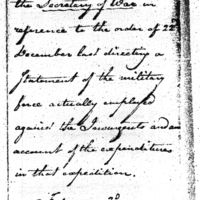 the Secretary of War in
reference to the order of 22d
December last directing a
Statement of the military
force actually employed
against the Insurgents and an
account of the expenditures
in that expedition.